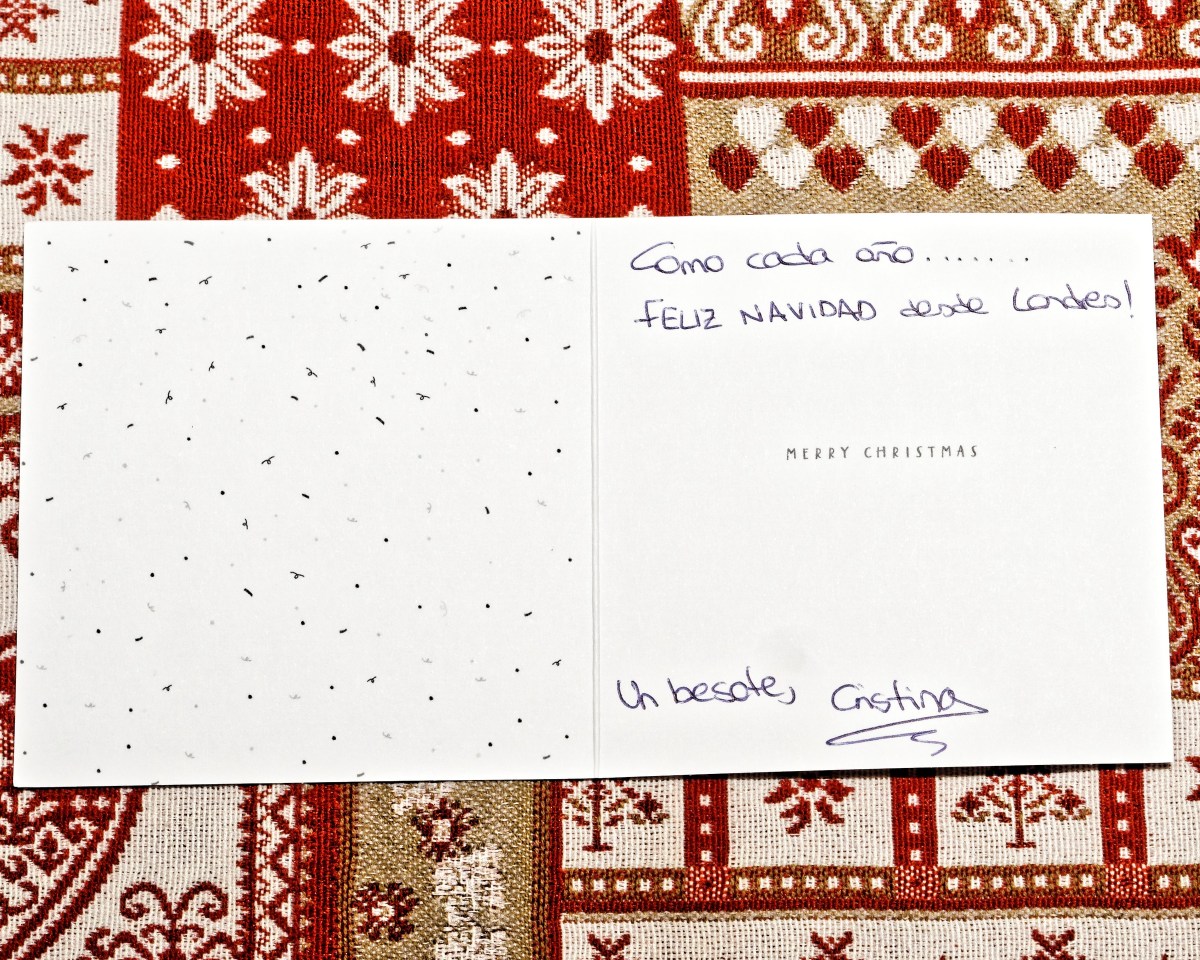 Como cada año.......
FELIZ NAVIDAD desde Londres!
MERRY CHRISTMAS
Un besote, Cristina